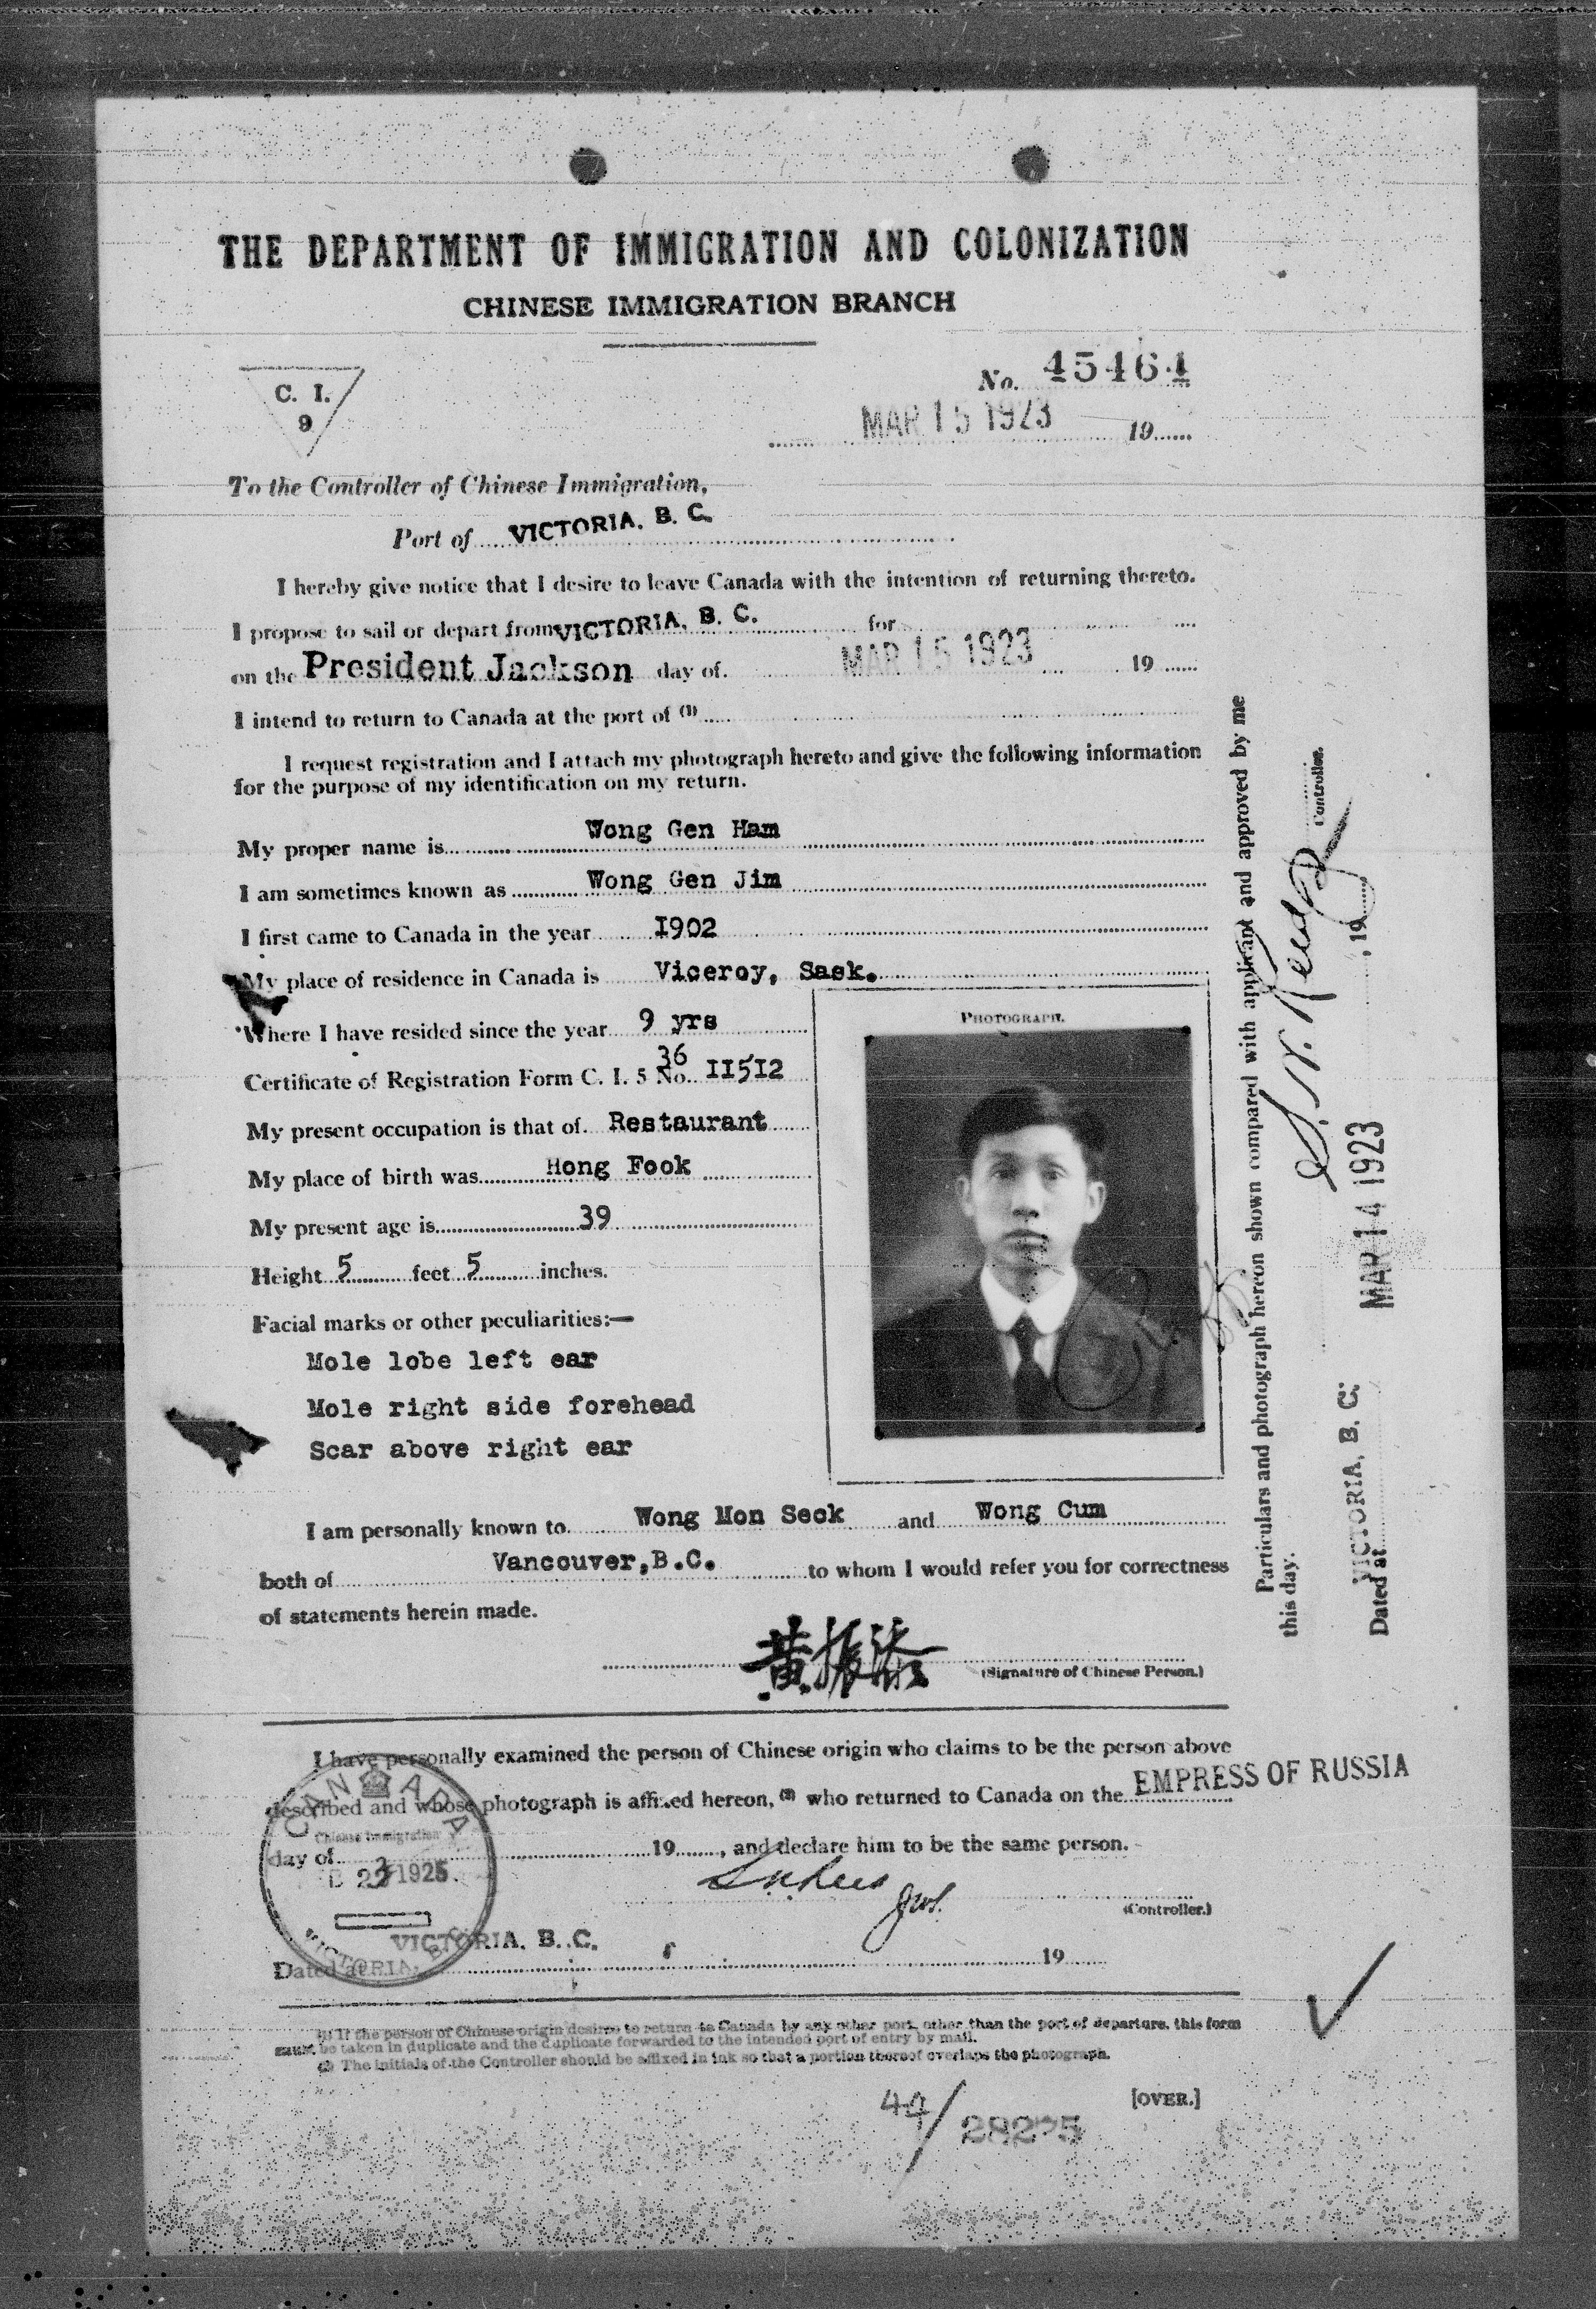 THE DEPARTMENT OF IMMIGRATION AND COLONIZATION
CHINESE IMMIGRATION BRANCH
C. I.
9
No. 45464
MAR 15 1923 19
To the Controller of Chinese Immigration,
Port of VICTORIA, B. C.
I hereby give notice that I desire to leave Canada with the intention of returning thereto.
I propose to sail or depart from VICTORIA, B. C. for
on the President Jackson day of MAR 15 1923 19
I intend to return to Canada at the port of (1)
I request registration and I attach my photograph hereto and give the following information
for the purpose of my identification on my return.
My proper name is Wong Gen Ham
I am sometimes known as Wong Gen Jim
I first came to Canada in the year 1902
My place of residence in Canada is Viceroy, Sask.
Where I have resided since the year 9 yrs
36
Certificate of Registration Form C. I. 5 No. 11512
My present occupation is that of Restaurant
My place of birth was Hong Fook
My present age is 39
Height 5 feet 5 inches.
Facial marks or other peculiarities:—
Mole lobe left ear
Mole right side forehead
Scar above right ear
PHOTOGRAPH.
I am personally known to Wong Mon Seck and Wong Cum
both of Vancouver, B.C. to whom I would refer you for correctness
of statements herein made.
黃振
(Signature of Chinese Person.)
I have personally examined the person of Chinese origin who claims to be the person above
described and whose photograph is affixed hereon, (2) who returned to Canada on the EMPRESS OF RUSSIA
day of 19, and declare him to be the same person.
(Controller.)
CANADA
Chinese Immigration
1925
VICTORIA, B.C.
VICTORIA, B. C.
Dated at 19
(1) If the person of Chinese origin desires to return to Canada by any other port, other than the port of departure, this form
must be taken in duplicate and the duplicate forwarded to the intended port of entry by mail.
(2) The initials of the Controller should be affixed in ink so that a portion thereof overlaps the photograph.
[OVER.]
44/28225
Particulars and photograph hereon shown compared with applicant and approved by me
this day.
Controller.
Dated at VICTORIA, B. C. MAR 14 1923, 19